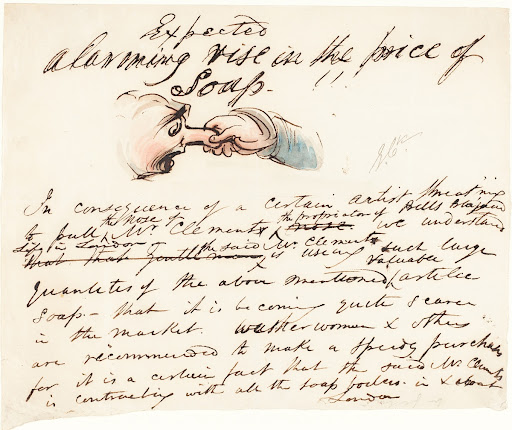 Expected
alarming rise in the price of
Soap. !!
In consequence of a certain artist threat'ning
to pull the nose of Mr Clements nose the proprietor of Bells Life in London we understand
that that gentleman the said Mr Clements is using such large
quantities of the above mentioned valuable article
soap - that it is becoming quite scarce
in the market. washerwomen & others
are recommended to make a speedy purchase
for it is a certain fact that the said Mr Clements
is contracting with all the soap boilers in & about
London